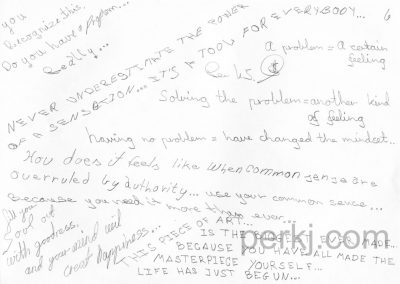 you
Recognize this.
Do you have a problem...
Really...
NEVER UNDERESTIMATE THE POWER
OF A SENSATION... IT'S A TOOL FOR EVERYBODY...
6
A problem = A certain
feeling
Solving the problem = another kind
of feeling
having no problem = have changed the mindset..
How does it feels like when common sense are
overruled by authority... use your common sense...
Because you need it more than ever...
fill your
Soul out
with goodness.
and your mind will
creat happiness...
THIS PIECE OF ART...
IS THE BIGGEST EVER MADE..
BECAUSE YOU HAVE ALL MADE THE
MASTERPIECE YOURSELF...
LIFE HAS JUST BEGUN...
perkj.com